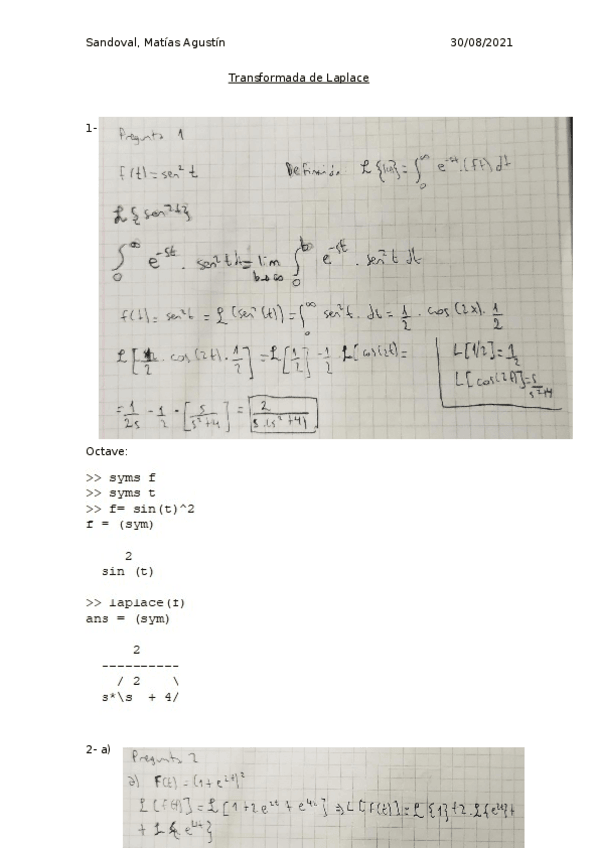 Sandoval, Matías Agustín 30/08/2021
Transformada de Laplace
1-
Pregunta 1
f(t)=sen²t Definición £{f(t)}=∫₀^∞ e^-st.(f(t)) dt
£{sen²t}
∫₀^∞ e^-st . sen²t dt = lim b→∞ ∫₀^b e^-st . sen²t dt
f(t)= sen²t = £(sen²(t)) = ∫₀^∞ sen²t . dt = 1/2 . cos(2x). 1/2
£[1/2 . cos(2t) . 1/2] = £[1/2] - 1/2 . £[cos(2t)= L[1/2]=1/2
L[cos(2t)]=s/s²+4
= 1/2s - 1/2 * [s/s²+4] = 2/s.(s²+4)
Octave:
>> syms f
>> syms t
>> f= sin(t)^2
f = (sym)
2
sin (t)
>> laplace(f)
ans = (sym)
2
----------
/ 2 \
s*\s + 4/
2- a)
Pregunta 2
a) F(t) = (1+e^2t)²
£[f(t)] = £[1+2e^2t + e^4t] => £[f(t)] = £{1}+2.£{e^2t}+
+ £{e^4t}